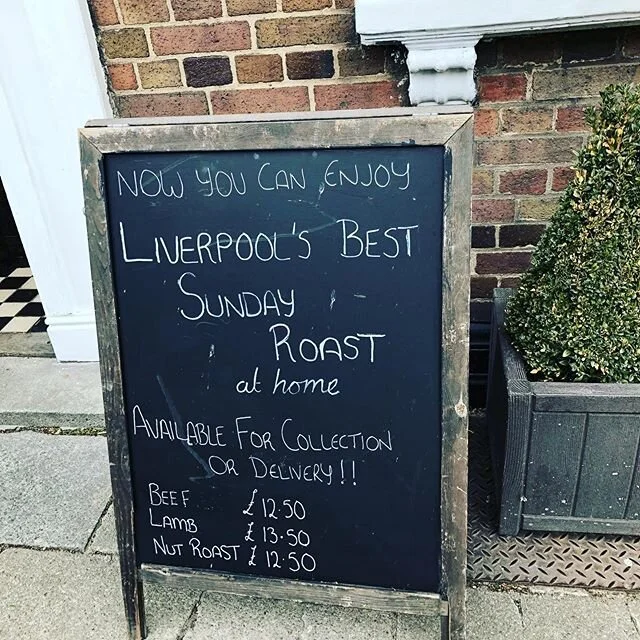 NOW YOU CAN ENJOY
LIVERPOOL'S BEST
SUNDAY
ROAST
at home
AVAILABLE FOR COLLECTION
OR DELIVERY!!
BEEF £12.50
LAMB £13.50
NUT ROAST £12.50